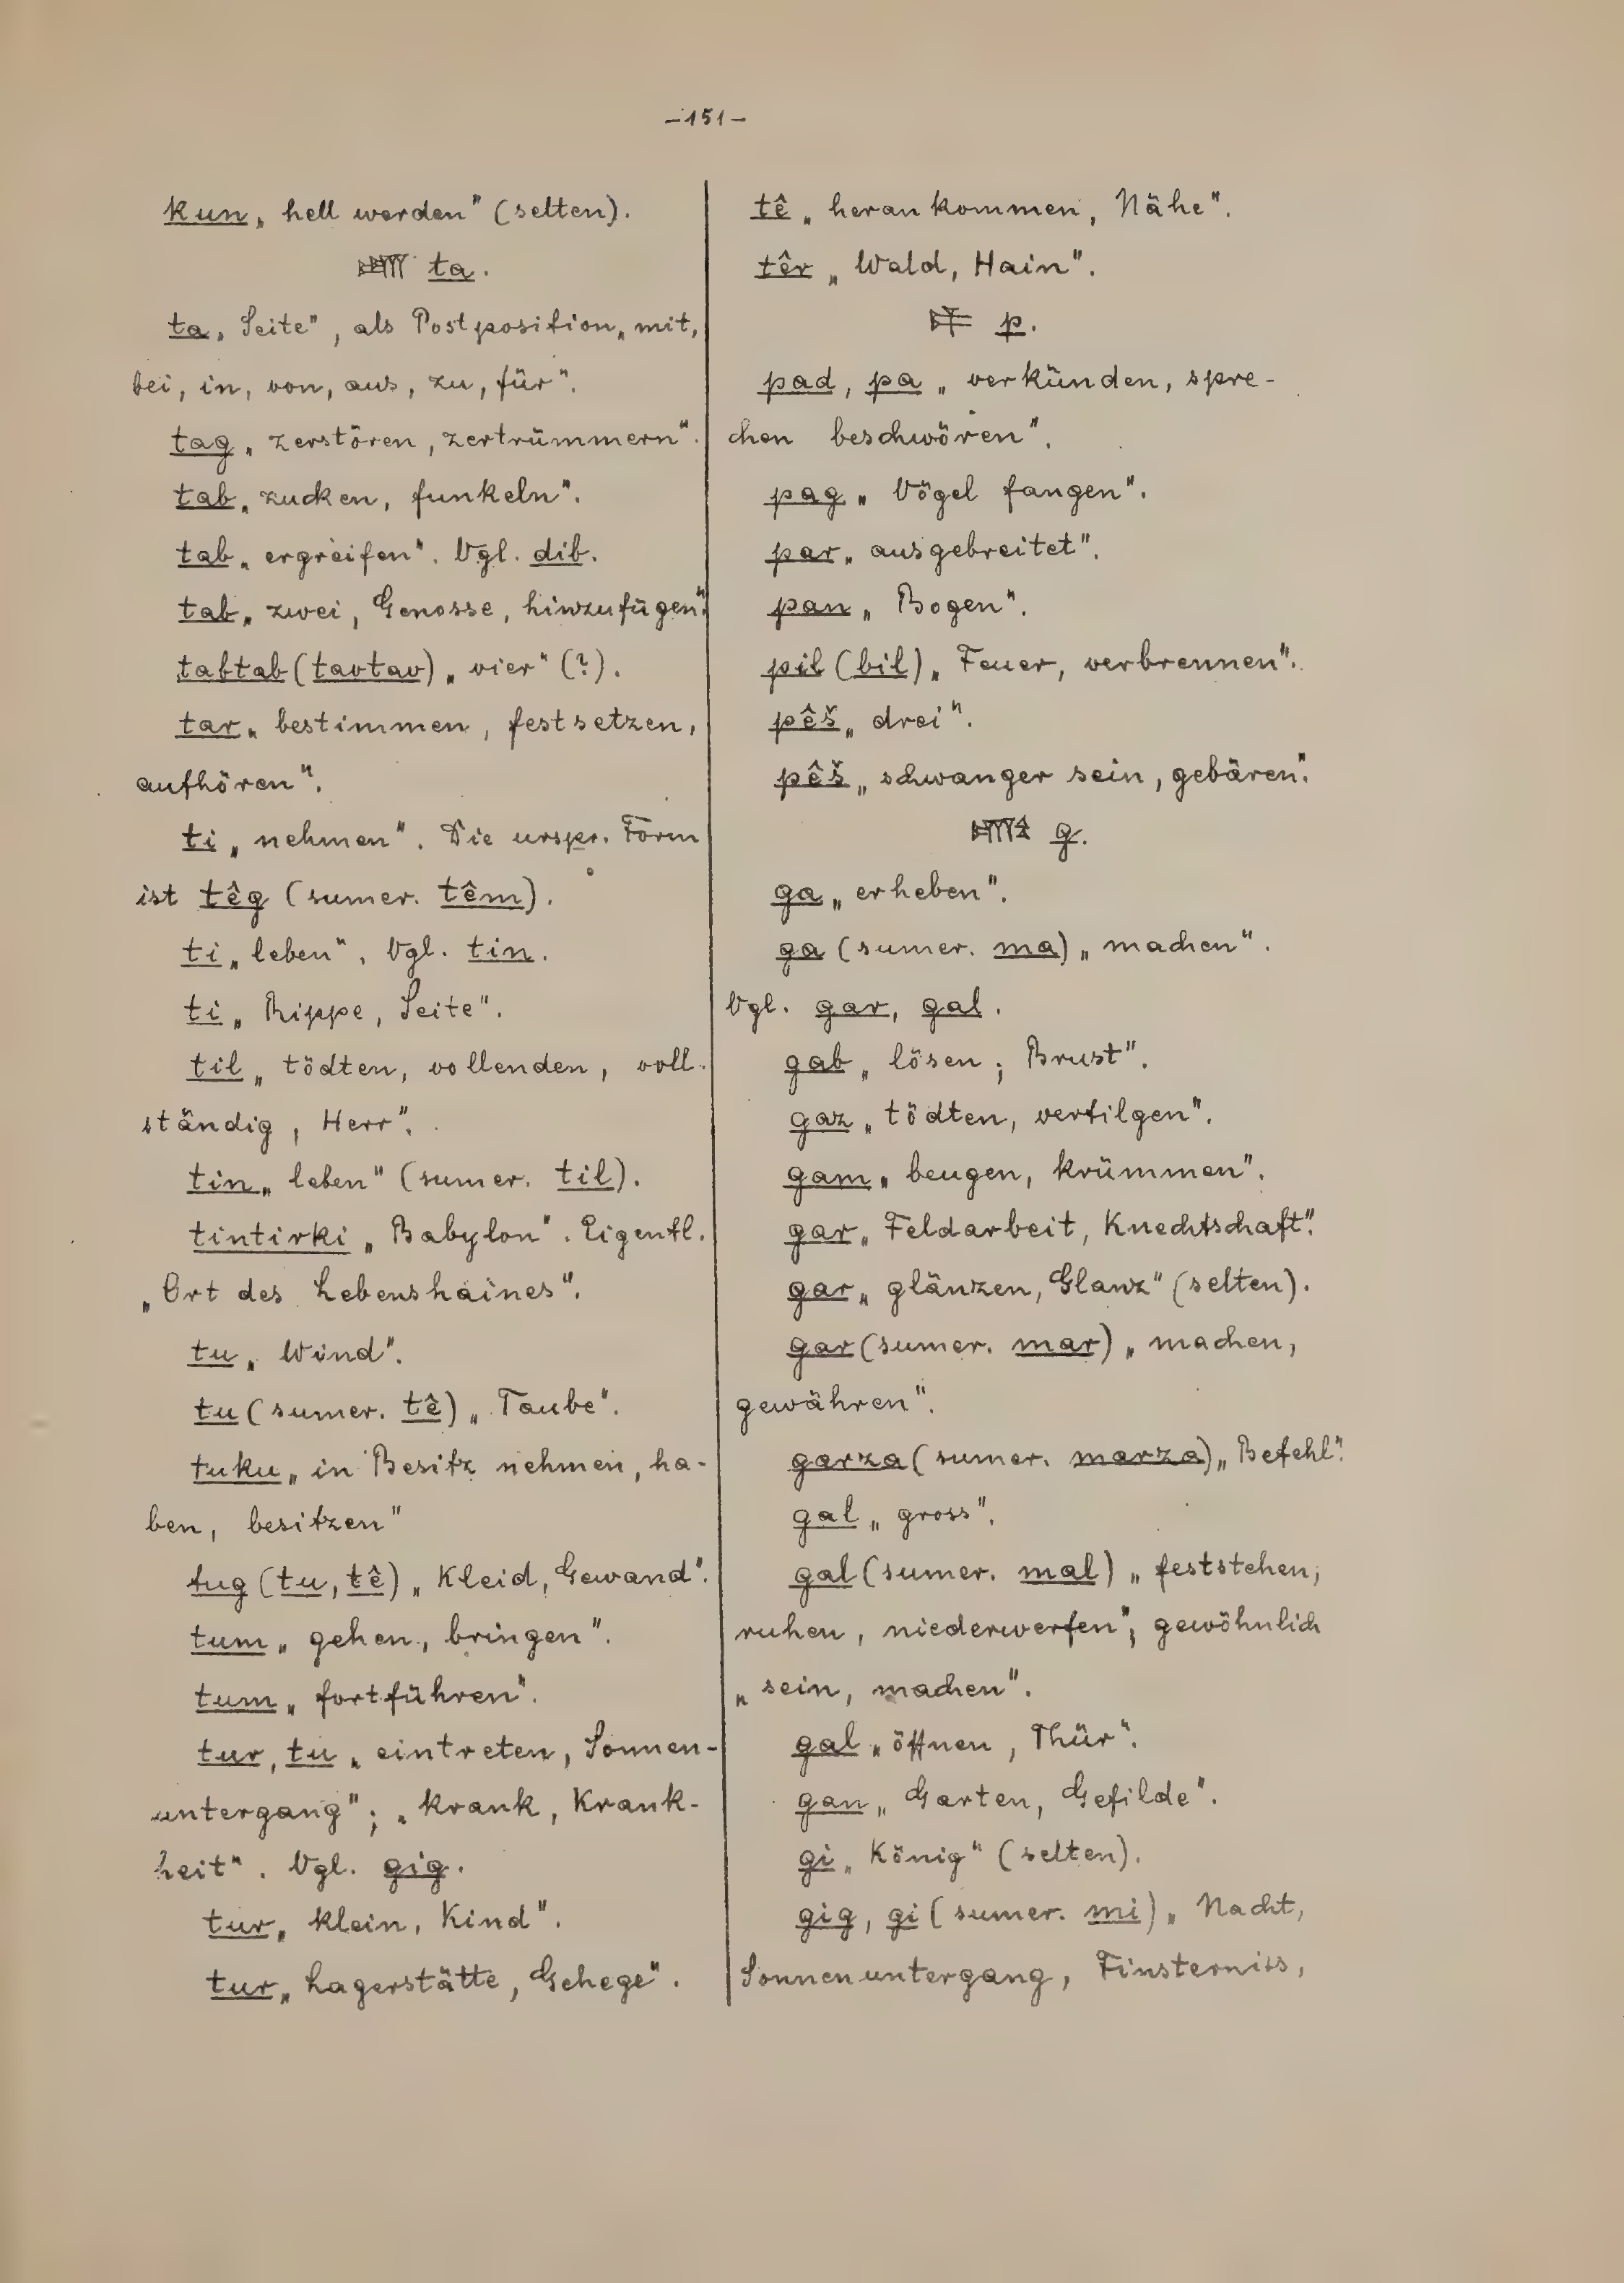 -151-
kun „hell werden" (selten).
𒋫 ta.
ta „Seite", als Postposition „mit,
bei, in, von, aus, zu, für".
tag „zerstören, zertrümmern".
tab „zucken, funkeln".
tab „ergreifen". Vgl. dib.
tab „zwei, Genosse, hinzufügen".
tabtab (tavtav) „vier" (?).
tar „bestimmen, festsetzen,
aufhören".
ti „nehmen". Die urspr. Form
ist têg (sumer. têm).
ti „leben". Vgl. tin.
ti „Rippe, Seite".
til „tödten, vollenden, voll-
ständig, Herr".
tin „leben" (sumer. til).
tintirki „Babylon". Eigentl.
„Ort des Lebenshaines".
tu „Wind".
tu (sumer. tê) „Taube".
tuku „in Besitz nehmen, ha-
ben, besitzen"
tug (tu, tê) „Kleid, Gewand".
tum „gehen, bringen".
tum „fortführen".
tur, tu „eintreten, Sonnen-
untergang"; „krank, Krank-
heit". Vgl. gig.
tur „klein, Kind".
tur „Lagerstätte, Gehege".
tê „herankommen, Nähe".
têr „Wald, Hain".
p.
pad, pa „verkünden, spre-
chen beschwören".
pag „Vögel fangen".
par „ausgebreitet".
pan „Bogen".
pil (bil) „Feuer, verbrennen".
pêš „drei".
pêš „schwanger sein, gebären".
g.
ga „erheben".
ga (sumer. ma) „machen".
Vgl. gar, gal.
gab „lösen; Brust".
gaz „tödten, vertilgen".
gam „beugen, krümmen".
gar „Feldarbeit, Knechtschaft".
gar „glänzen, Glanz" (selten).
gar (sumer. mar) „machen,
gewähren".
garza (sumer. marza) „Befehl".
gal „gross".
gal (sumer. mal) „feststehen,
ruhen, niederwerfen"; gewöhnlich
„sein, machen".
gal „öffnen, Thür".
gan „Garten, Gefilde".
gi „König" (selten).
gig, gi (sumer. mi) „Nacht,
Sonnenuntergang, Finsterniss,